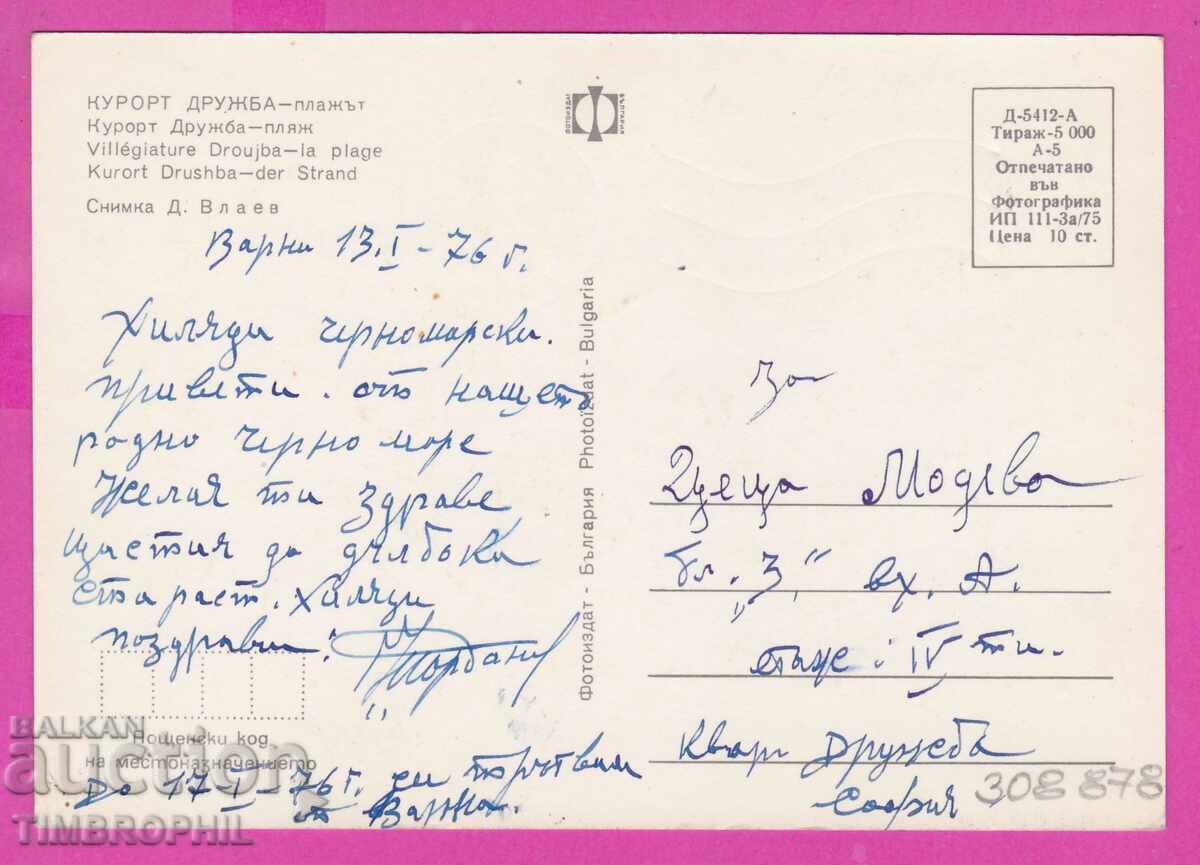 КУРОРТ ДРУЖБА—плажът
Курорт Дружба—пляж
Villégiature Droujba—la plage
Kurort Drushba—der Strand
Снимка Д. Влаев
ФОТОИЗДАТ БЪЛГАРИЯ
Д-5412-А
Тираж-5 000
А-5
Отпечатано
във
Фотографика
ИП 111-За/75
Цена 10 ст.
Варна 13.I-76 г.
Хиляди черноморски.
привети. от нащето
родно черно море
Желая ти здраве
щастия до дълбока
стараст. Хиляди
поздрави!
Фотоиздат - България Photoizdat - Bulgaria
За
Цеца
бл. „3," вх. А.
етаж: IV ти.
Кварт Дружба
София
308 878
Пощенски код
на местоназначението
До 17 I-76 г. си
Варна.
BALKAN
auction
TIMBROPHIL